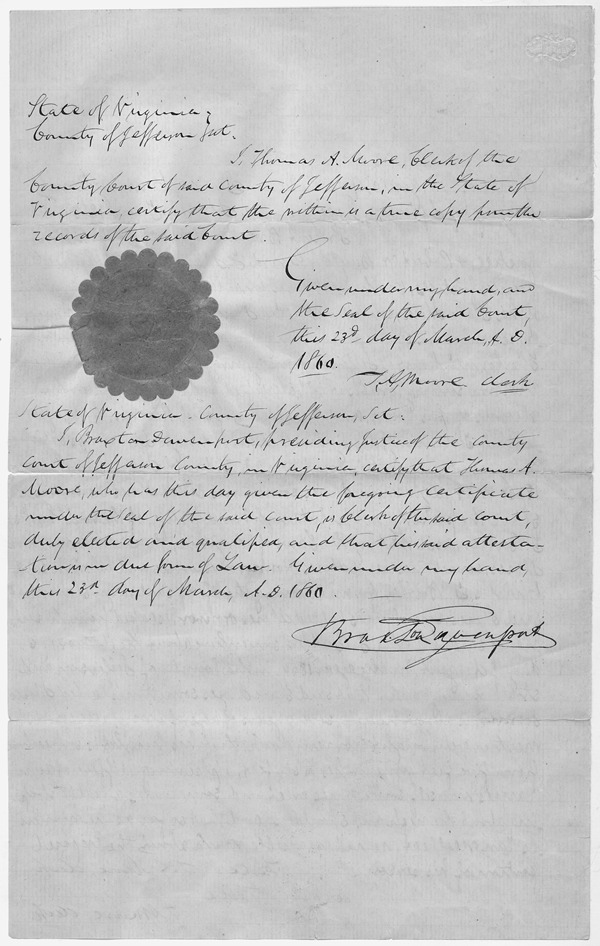 State of Virginia,
County of Jefferson Sct.
I, Thomas A. Moore, Clerk of the
County Court of said county of Jefferson, in the State of
Virginia, certify that the within is a true copy from the
records of the said Court.
Given under my hand, and
the Seal of the said Court,
this 23d. day of March, A. D.
1860.
T. A. Moore clerk
State of Virginia. County of Jefferson, Sct:
I, Braxton Davenport, presiding Justice of the county
court of Jefferson County, in Virginia, certify that Thomas A.
Moore, who has this day given the foregoing certificate
under the seal of the said court, is Clerk of the said court,
duly elected and qualified, and that his said attesta-
tion is in due form of Law. Given under my hand,
this 23d day of March, A. D. 1860.
Braxton Davenport